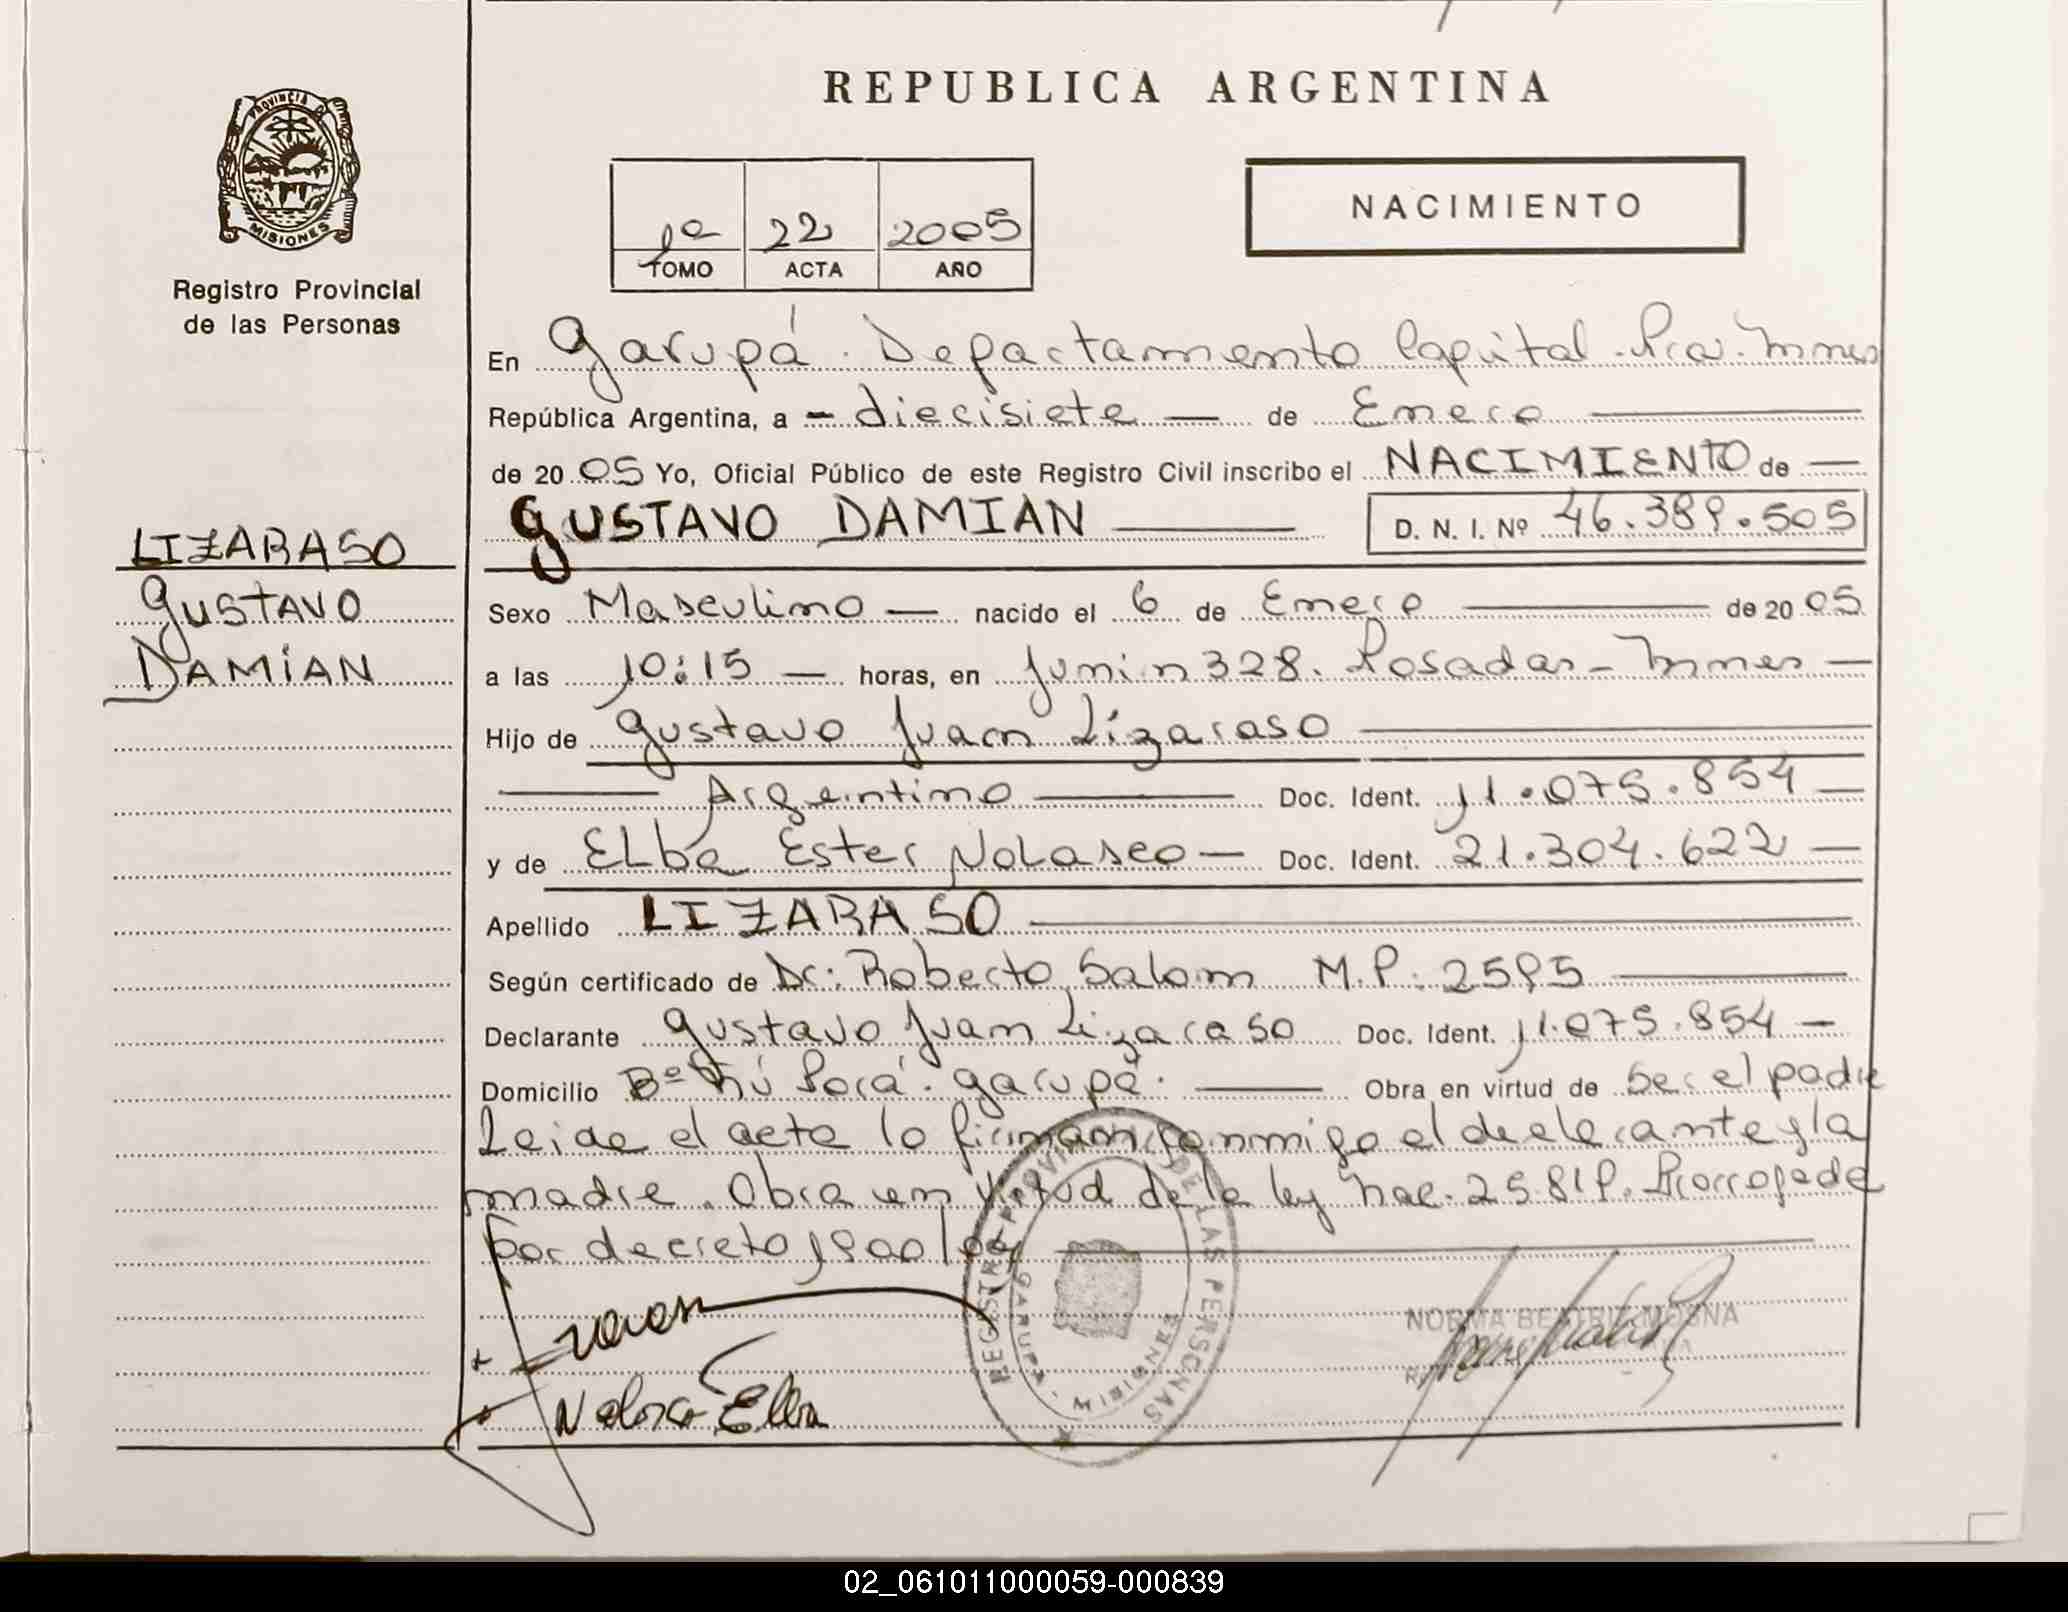 REPUBLICA ARGENTINA
PROVINCIA DE
MISIONES
Registro Provincial
de las Personas
1º 22 2005
TOMO ACTA AÑO
NACIMIENTO
En Garupá. Departamento Capital. Pcia. Mnes
República Argentina, a - diecisiete — de Enero
de 20 05 Yo, Oficial Público de este Registro Civil inscribo el NACIMIENTO de —
GUSTAVO DAMIAN — D. N. I. Nº 46.389.505
LIZARASO
GUSTAVO
DAMIAN
Sexo Masculino — nacido el 6 de Enero — de 20 05
a las 10:15 — horas, en Junin 328. Posadas - Mnes —
Hijo de Gustavo Juan Lizaraso —
— Argentino — Doc. Ident. 11.075.854 —
y de Elba Ester Nolasco — Doc. Ident. 21.304.622 —
Apellido LIZARASO —
Según certificado de Dr: Roberto Salom M.P. 2595 —
Declarante Gustavo Juan Lizaraso Doc. Ident. 11.075.854 —
Domicilio Bº Ñú Porá. Garupá. — Obra en virtud de Ser el padre
Leida el acta lo firman conmigo el declarante y la
madre. Obra en virtud de la ley nac. 25.819. Prorrogada
por decreto 1900/04 —
REGISTRO PROVINCIAL DE LAS PERSONAS
GARUPA - MISIONES
NORMA BEATRIZ MOSNA
Nolasco Elba
02_061011000059-000839